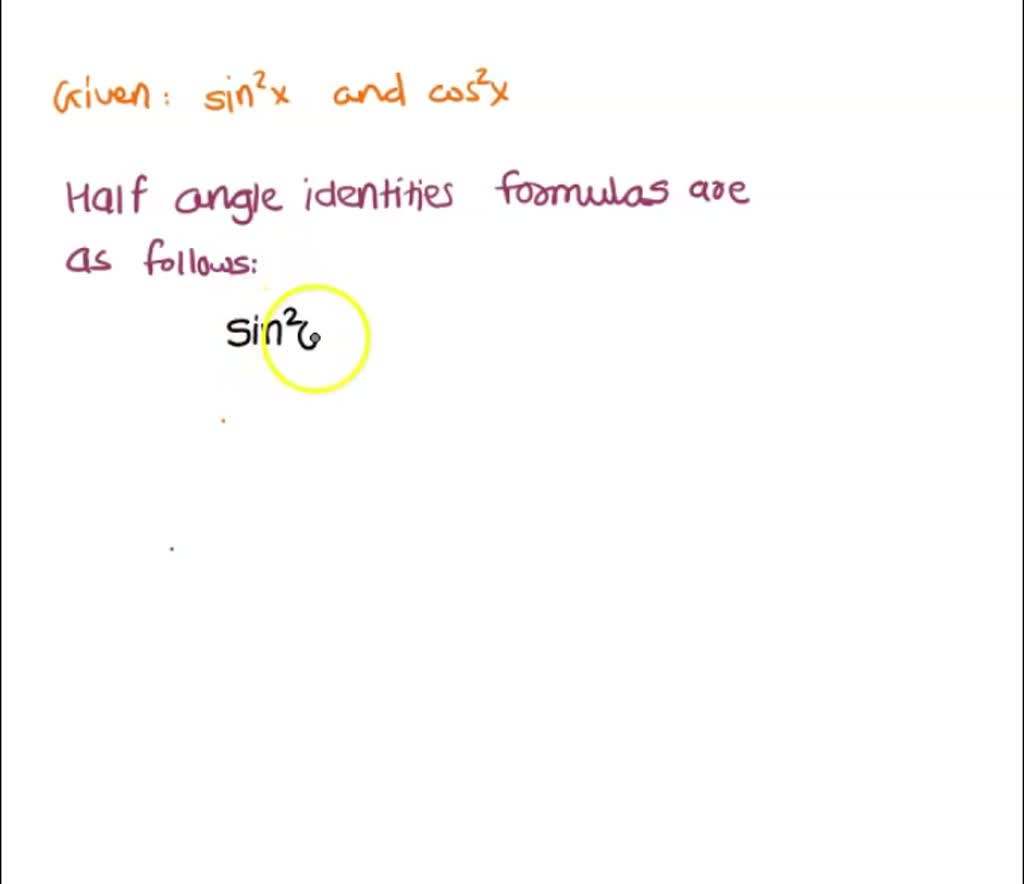 Given: sin²x and cos²x
Half angle identities formulas are
as follows:
sin²